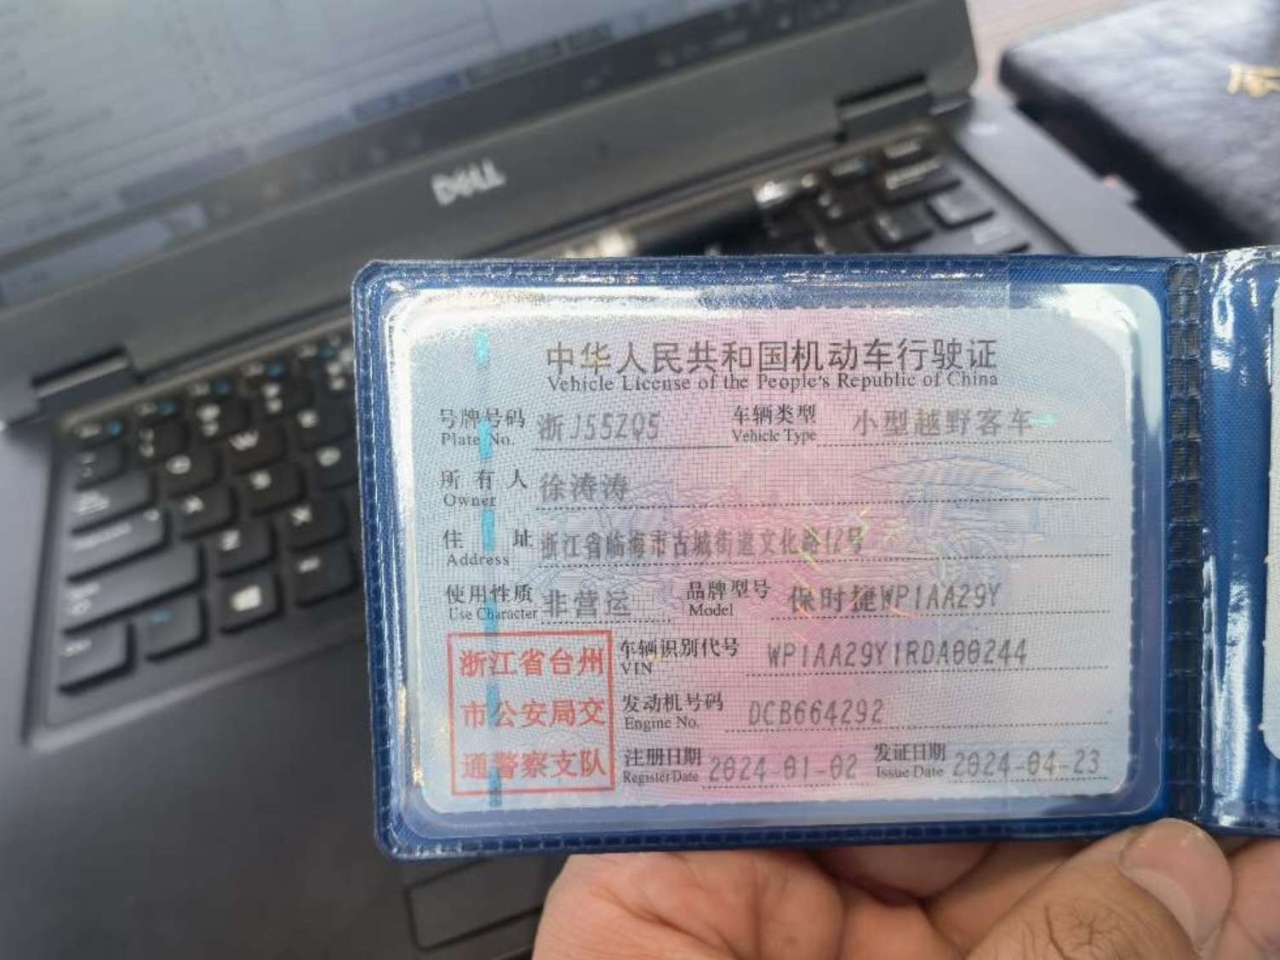 DELL
中华人民共和国机动车行驶证
Vehicle License of the People's Republic of China
号牌号码 浙J55ZQ5 车辆类型 小型越野客车
Plate No. Vehicle Type
所有人 徐涛涛
Owner
住址 浙江省临海市古城街道文化路12号
Address
使用性质 非营运 品牌型号 保时捷WP1AA29Y
Use Character Model
浙江省台州
市公安局交
通警察支队
车辆识别代号 WP1AA29Y1RDA00244
VIN
发动机号码 DCB664292
Engine No.
注册日期 2024-01-02 发证日期 2024-04-23
Register Date Issue Date